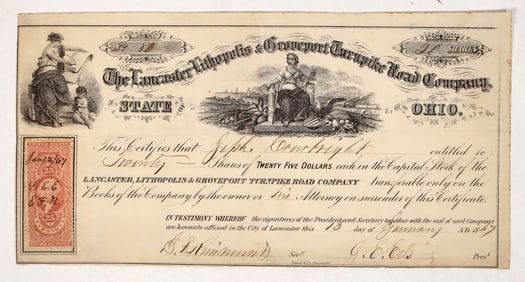 No 80 20 SHARES
The Lancaster, Lithopolis & Groveport Turnpike Road Company,
STATE OHIO.
This Certifies that Courtright entitled to
Twenty Shares of TWENTY FIVE DOLLARS each in the Capital Stock of the
LANCASTER, LITHOPOLIS & GROVEPORT TURNPIKE ROAD COMPANY transferable only on the
Books of the Company by the owner or his Attorney on surrender of this Certificate.
IN TESTIMONY WHEREOF the signatures of the President and Secretary together with the seal of said Company
are hereunto affixed in the City of Lancaster this 15 day of January A.D. 1867
Secy. G. E. Prest.
Jan 14/67
25 25
G E E
25 25